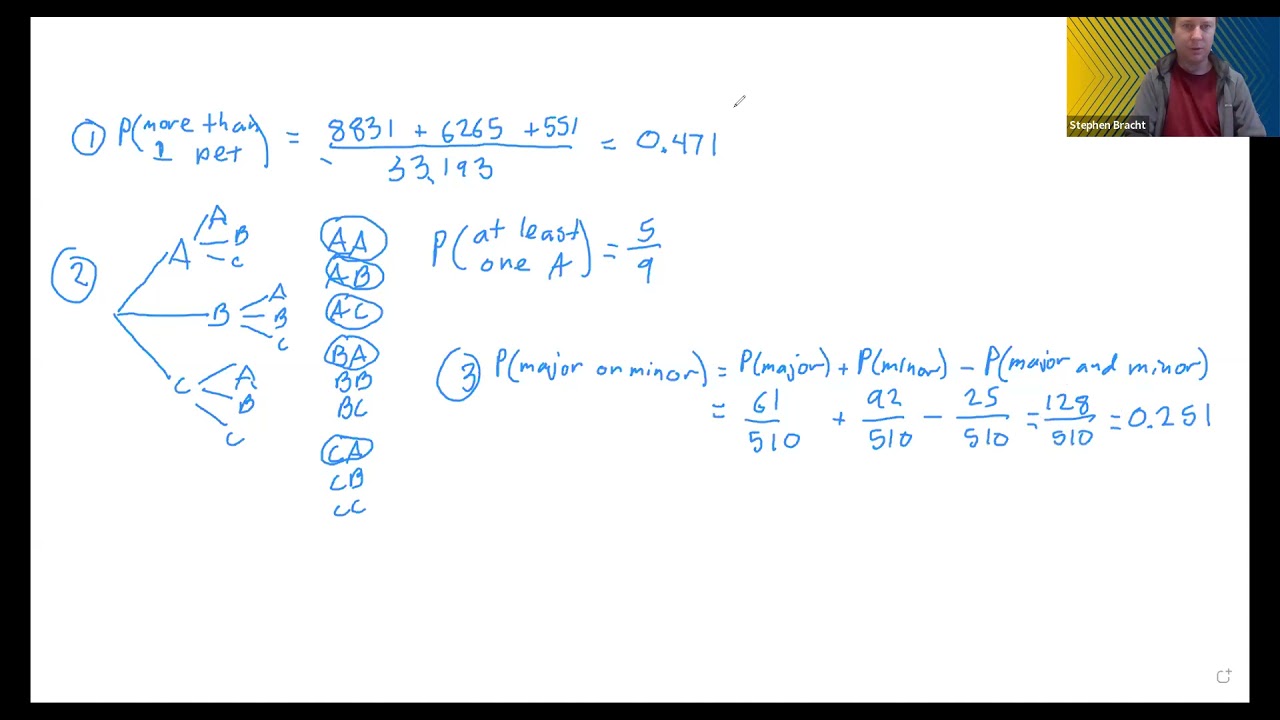 Stephen Bracht
① P(more than 1 pet) = 8831 + 6265 + 551 / 33,193 = 0.471
②
A
A
B
C
B
A
B
C
C
A
B
C
AA
AB
AC
BA
BB
BC
CA
CB
CC
P(at least one A) = 5/9
③ P(major or minor) = P(major) + P(minor) - P(major and minor)
= 61/510 + 92/510 - 25/510 = 128/510 = 0.251